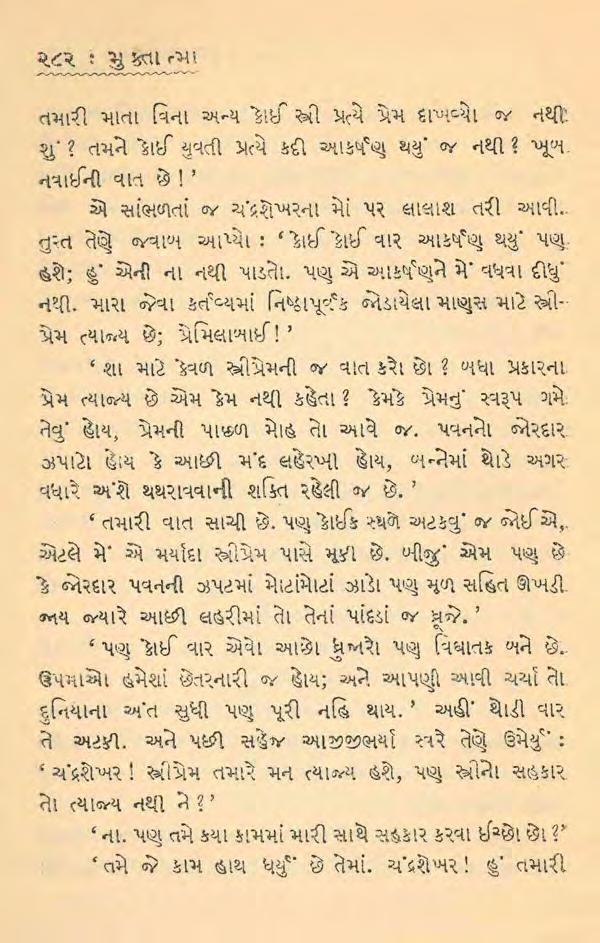 ૨૮૨ : મુક્તાત્મા
તમારી માતા વિના અન્ય કોઈ સ્ત્રી પ્રત્યે પ્રેમ દાખવ્યો જ નથી
શું ? તમને કોઈ યુવતી પ્રત્યે કદી આકર્ષણ થયું જ નથી ? ખૂબ
નવાઈની વાત છે ! ’
એ સાંભળતાં જ ચંદ્રશેખરના મોં પર લાલાશ તરી આવી.
તુરત તેણે જવાબ આપ્યો : ‘ કોઈ કોઈ વાર આકર્ષણ થયું પણ
હશે; હું એની ના નથી પાડતો. પણ એ આકર્ષણને મેં વધવા દીધું
નથી. મારા જેવા કર્તવ્યમાં નિષ્ઠાપૂર્વક જોડાયેલા માણુસ માટે સ્ત્રી-
પ્રેમ ત્યાજ્ય છે; પ્રેમિલાબાઈ ! ’
‘ શા માટે કેવળ સ્ત્રીપ્રેમની જ વાત કરો છો ? બધા પ્રકારના
પ્રેમ ત્યાજ્ય છે એમ કેમ નથી કહેતા ? કેમકે પ્રેમનું સ્વરૂપ ગમે
તેવું હોય, પ્રેમની પાછળ મોહ તો આવે જ. પવનનો જોરદાર
ઝપાટો હોય કે આછી મંદ લહેરખી હોય, બન્નેમાં થોડે અગર
વધારે અંશે થથરાવવાની શક્તિ રહેલી જ છે. ’
‘ તમારી વાત સાચી છે. પણ કોઈક સ્થળે અટકવું જ જોઈએ,
એટલે મેં એ મર્યાદા સ્ત્રીપ્રેમ પાસે મૂકી છે. બીજું એમ પણ છે
કે જોરદાર પવનની ઝપટમાં મોટાંમોટાં ઝાડો પણ મૂળ સહિત ઊખડી
જાય જ્યારે આછી લહરીમાં તો તેનાં પાંદડાં જ ધ્રૂજે. ’
‘ પણ કોઈ વાર એવો આછો ધ્રુજારો પણ વિઘાતક બને છે.
ઉપમાઓ હમેશાં છેતરનારી જ હોય; અને આપણી આવી ચર્ચા તો
દુનિયાના અંત સુધી પણ પૂરી નહિ થાય. ’ અહીં થોડી વાર
તે અટકી. અને પછી સહેજ આજીજીભર્યા સ્વરે તેણે ઉમેર્યું :
‘ ચંદ્રશેખર ! સ્ત્રીપ્રેમ તમારે મન ત્યાજ્ય હશે, પણ સ્ત્રીનો સહકાર
તો ત્યાજ્ય નથી ને ?’
‘ ના. પણ તમે કયા કામમાં મારી સાથે સહકાર કરવા ઈચ્છો છો ?’
‘ તમે જે કામ હાથ ધર્યું છે તેમાં. ચંદ્રશેખર ! હું તમારી